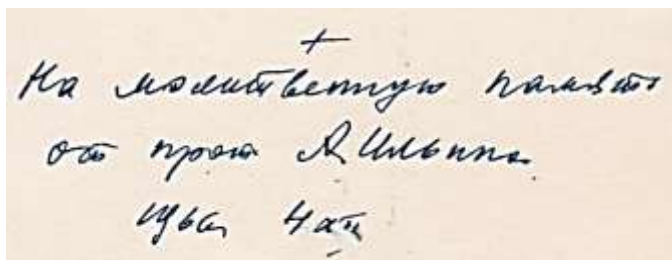 На молитвенную память
от прот А. Ильина